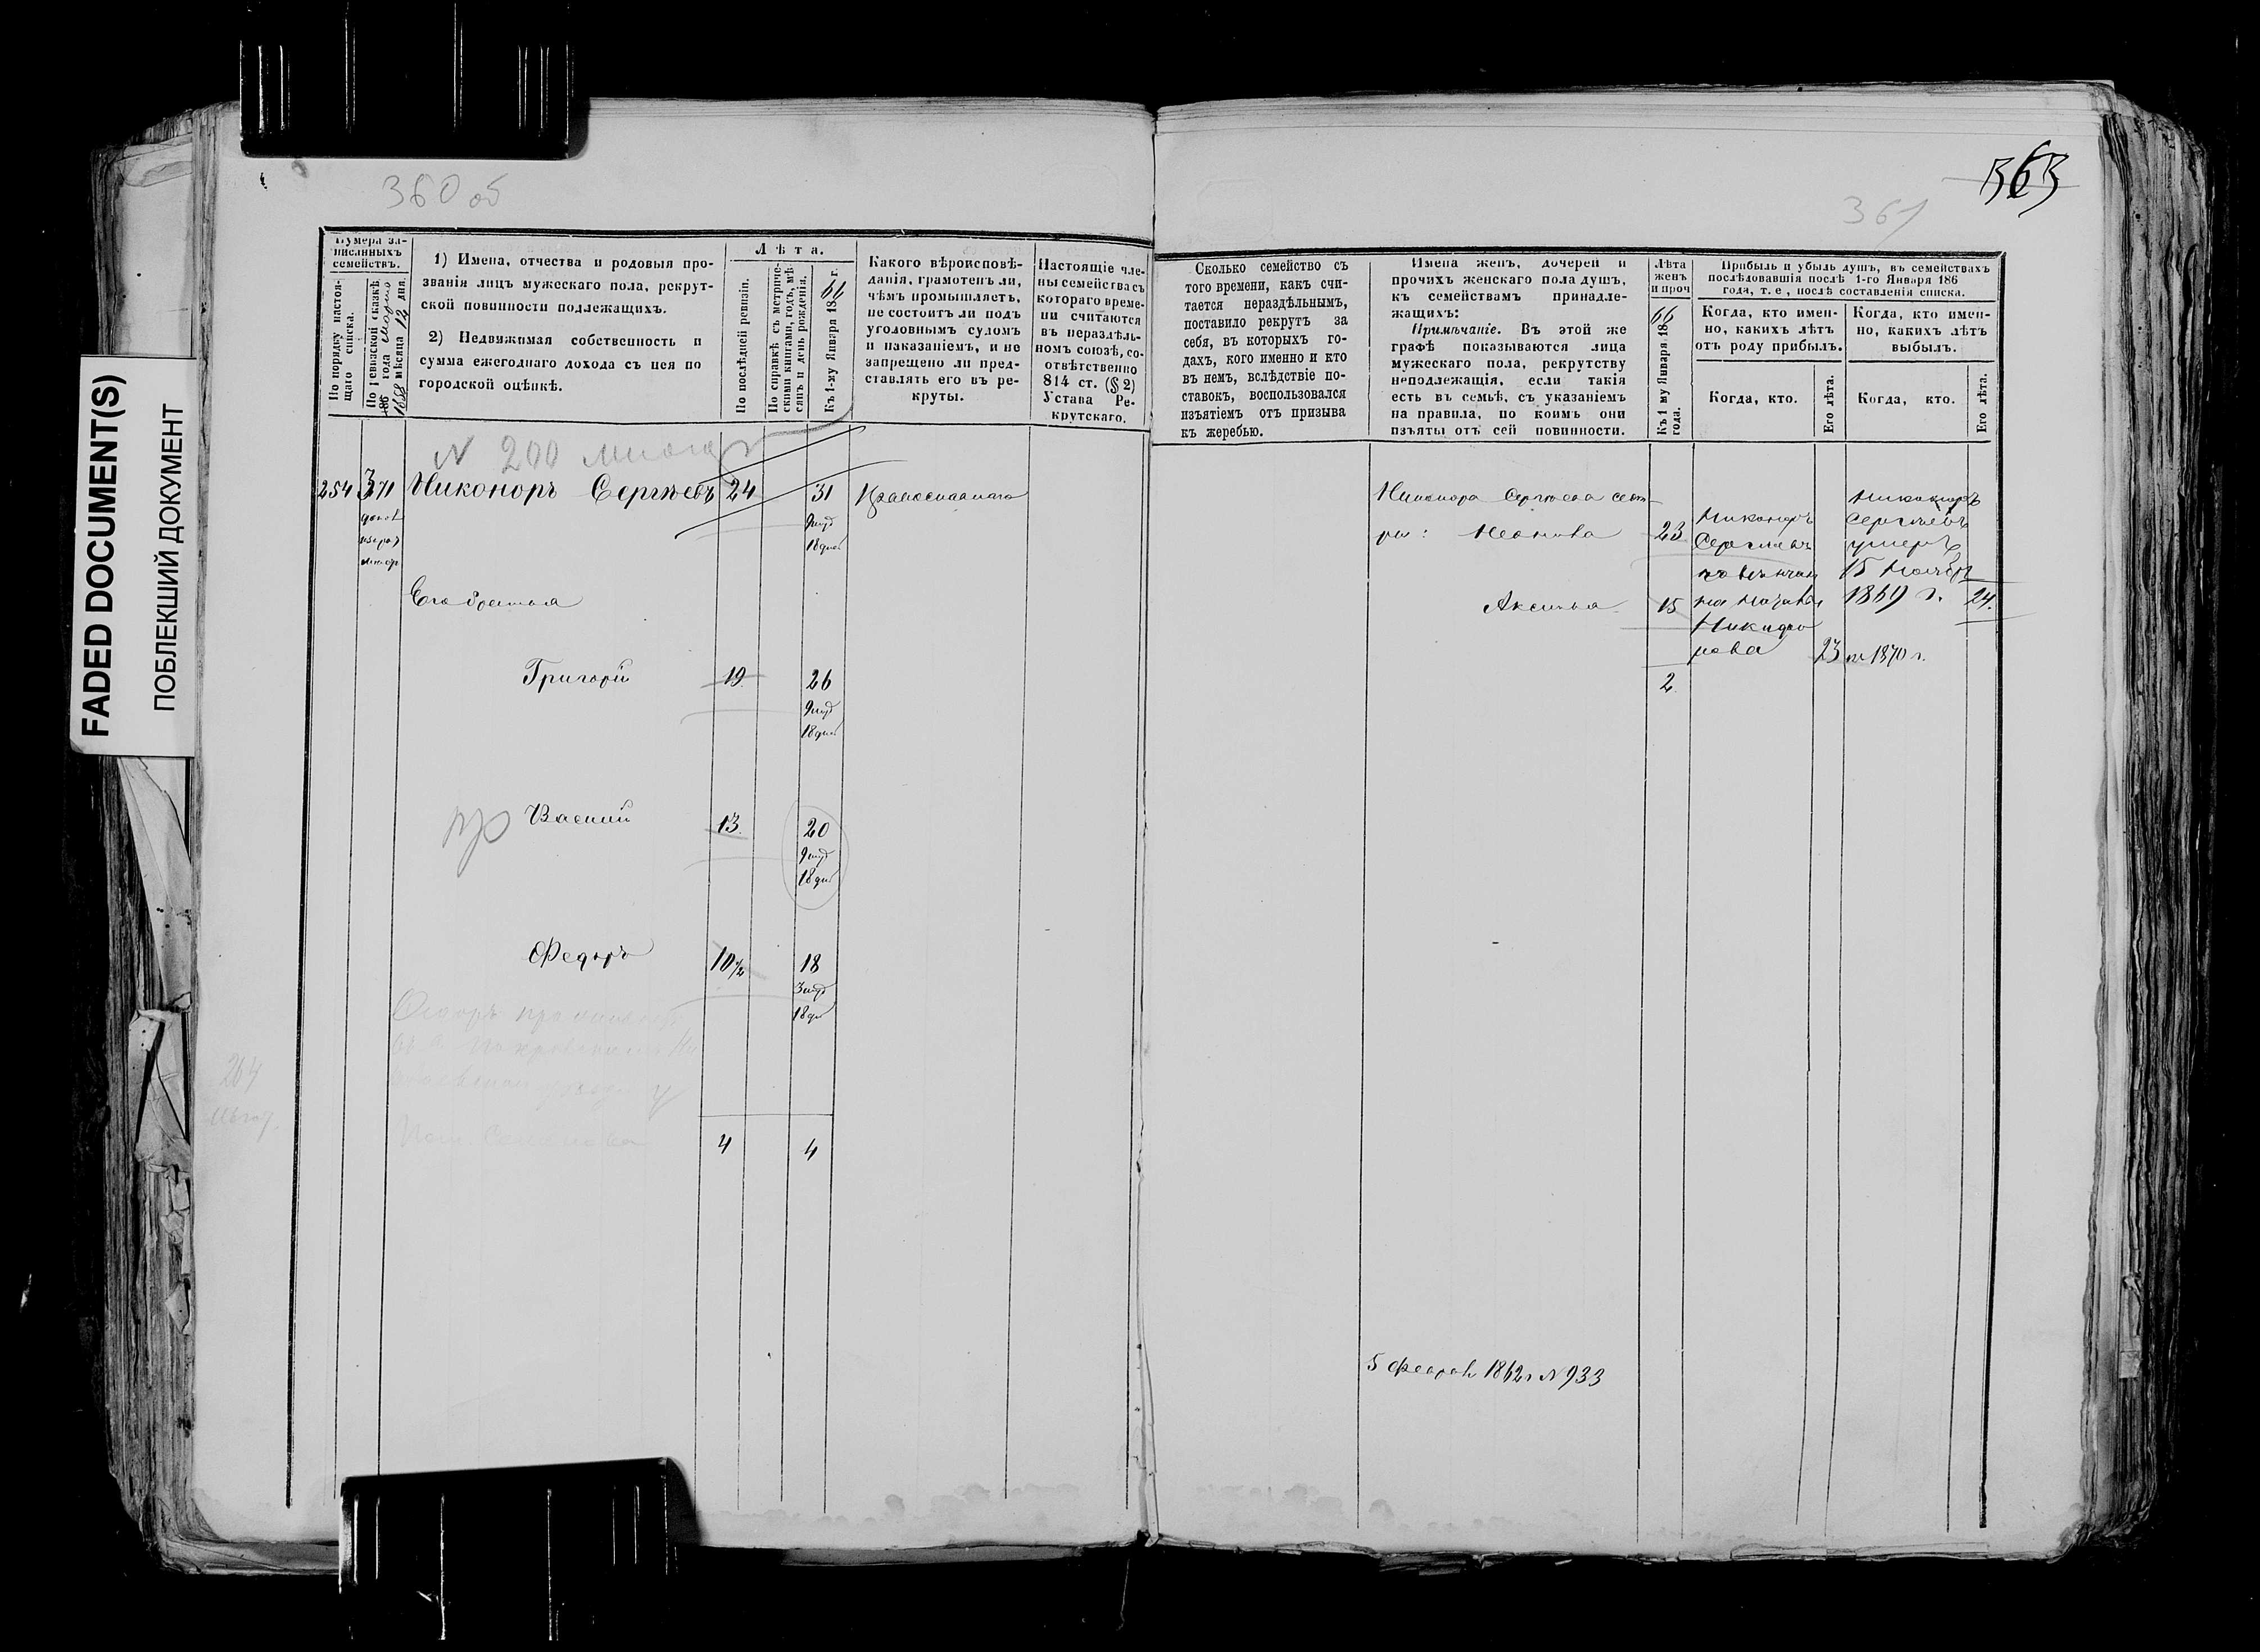 FADED DOCUMENT(S)
ПОБЛЕКШИЙ ДОКУМЕНТ
360 об
Нумера за-
писанныхъ
семействъ.
По порядку настоя-
щаго списка.
По ревизской сказкѣ
186 года марта
1858 мѣсяца 12 дня.
1) Имена, отчества и родовыя про-
званія лицъ мужескаго пола, рекрут-
ской повинности подлежащихъ.
2) Недвижимая собственность и
сумма ежегоднаго дохода съ нея по
городской оцѣнкѣ.
Лѣта.
По послѣдней ревизіи.
По справкѣ съ метриче-
скими книгами, годъ, мѣ-
сяцъ и день рожденія.
Къ 1-му Января 1866 г.
Какого вѣроисповѣ-
данія, грамотенъ ли,
чѣмъ промышляетъ,
не состоитъ ли подъ
уголовнымъ судомъ
и наказаніемъ, и не
запрещено ли пред-
ставлять его въ ре-
круты.
Настоящіе чле-
ны семейства съ
котораго време-
ни считаются
въ нераздѣль-
номъ союзѣ, со-
отвѣтственно
814 ст. (§ 2)
Устава Ре-
крутскаго.
N 200
254 371 Никоноръ Сергѣевъ 24 31 Православнаго
9 мѣс
18 дней
Его братья
Григорій 19 26
9 мѣс
18 дней
Василій 13 20
9 мѣс
18 дней
Федоръ 10 1/2 18
3 мѣс
18 дн
264
4 4
363
361
Сколько семейство съ
того времени, какъ счи-
тается нераздѣльнымъ,
поставило рекрутъ за
себя, въ которыхъ го-
дахъ, кого именно и кто
въ немъ, вслѣдствіе по-
ставокъ, воспользовался
изъятіемъ отъ призыва
къ жеребью.
Имена женъ, дочерей и
прочихъ женскаго пола душъ,
къ семействамъ принадле-
жащихъ:
Примѣчаніе. Въ этой же
графѣ показываются лица
мужескаго пола, рекрутству
неподлежащія, если такія
есть въ семьѣ, съ указаніемъ
на правила, по коимъ они
изъяты отъ сей повинности.
Лѣта
женъ
и проч
Къ 1 му Января 1866
года.
Прибыль и убыль душъ, въ семействахъ
послѣдовавшія послѣ 1-го Января 186
года, т. е, послѣ составленія списка.
Когда, кто имен-
но, какихъ лѣтъ
отъ роду прибылъ.
Когда, кто имен-
но, какихъ лѣтъ
выбылъ.
Когда, кто.
Его лѣта.
Когда, кто.
Его лѣта.
Никонора Сергѣева сест-
ры: 23
Аксинья 15
2
Никаноръ
Сергѣевъ
повѣнчан
на
Никифо
рова 23
Никаноръ
Сергѣевъ
умеръ
15 Ноября
1869 г. 24.
1870 г.
5 Феврал 1862 г N 933